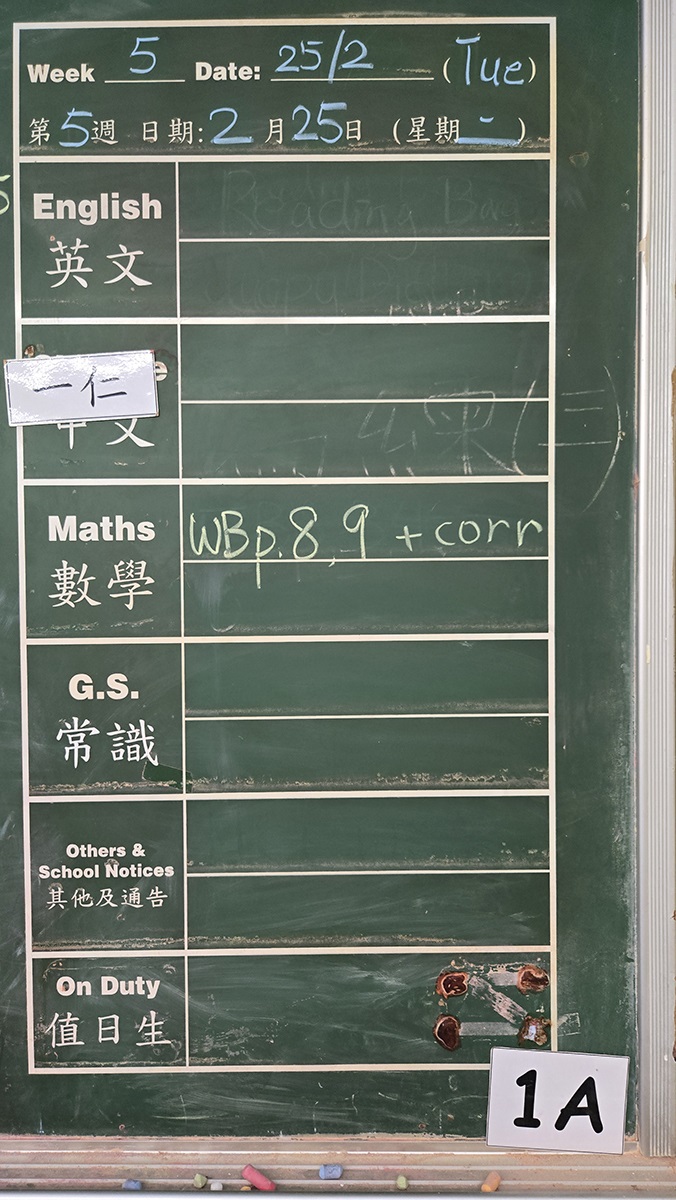 Week 5 Date: 25/2 (Tue)
第5週 日期:2月25日 (星期二)
English
英文
Reading
Copy
一仁
中文
(三)
Maths
WBp.8,9 + corr
數學
G.S.
常識
Others &
School Notices
其他及通告
On Duty
值日生
1A